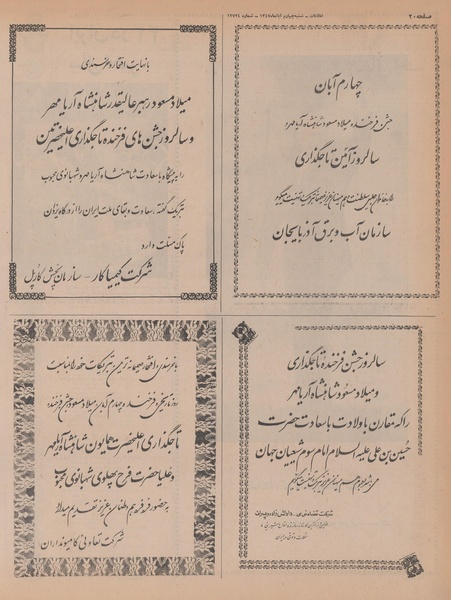 صفحه ۲۰
اطلاعات - شنبه چهارم آبانماه ۱۳۴۷ - شماره
چهارم آبان
جشن فرخنده میلاد مسعود شاهنشاه آریامهر
سالروز آئین تاجگذاری
سازمان آب و برق آذربایجان
با نهایت افتخار و خرسندی
میلاد مسعود رهبر عالیقدر شاهنشاه آریامهر
و سالروز جشن های فرخنده تاجگذاری اعلیحضرتین
را به پیشگاه با سعادت شاهنشاه آریامهر و شهبانوی محبوب
تبریک گفته ، سعادت و بقای ملت ایران را از درگاه یزدان
پاک مسئلت دارد
شرکت کیمیا کار - سازمان پخش کارپل
سالروز جشن فرخنده تاجگذاری
و میلاد مسعود شاهنشاه آریامهر
را که مقارن با ولادت با سعادت حضرت
حسین بن علی علیه السلام امام سوم شیعیان جهان
روز تاریخی و فرخنده چهارم آبان میلاد مسعود و جشن فرخنده
تاجگذاری اعلیحضرت همایون شاهنشاه آریامهر
و علیاحضرت فرح پهلوی شهبانوی محبوب
به حضور فرد فرد هموطنان عزیز تقدیم میدارد
شرکت تعاونی کامیونداران